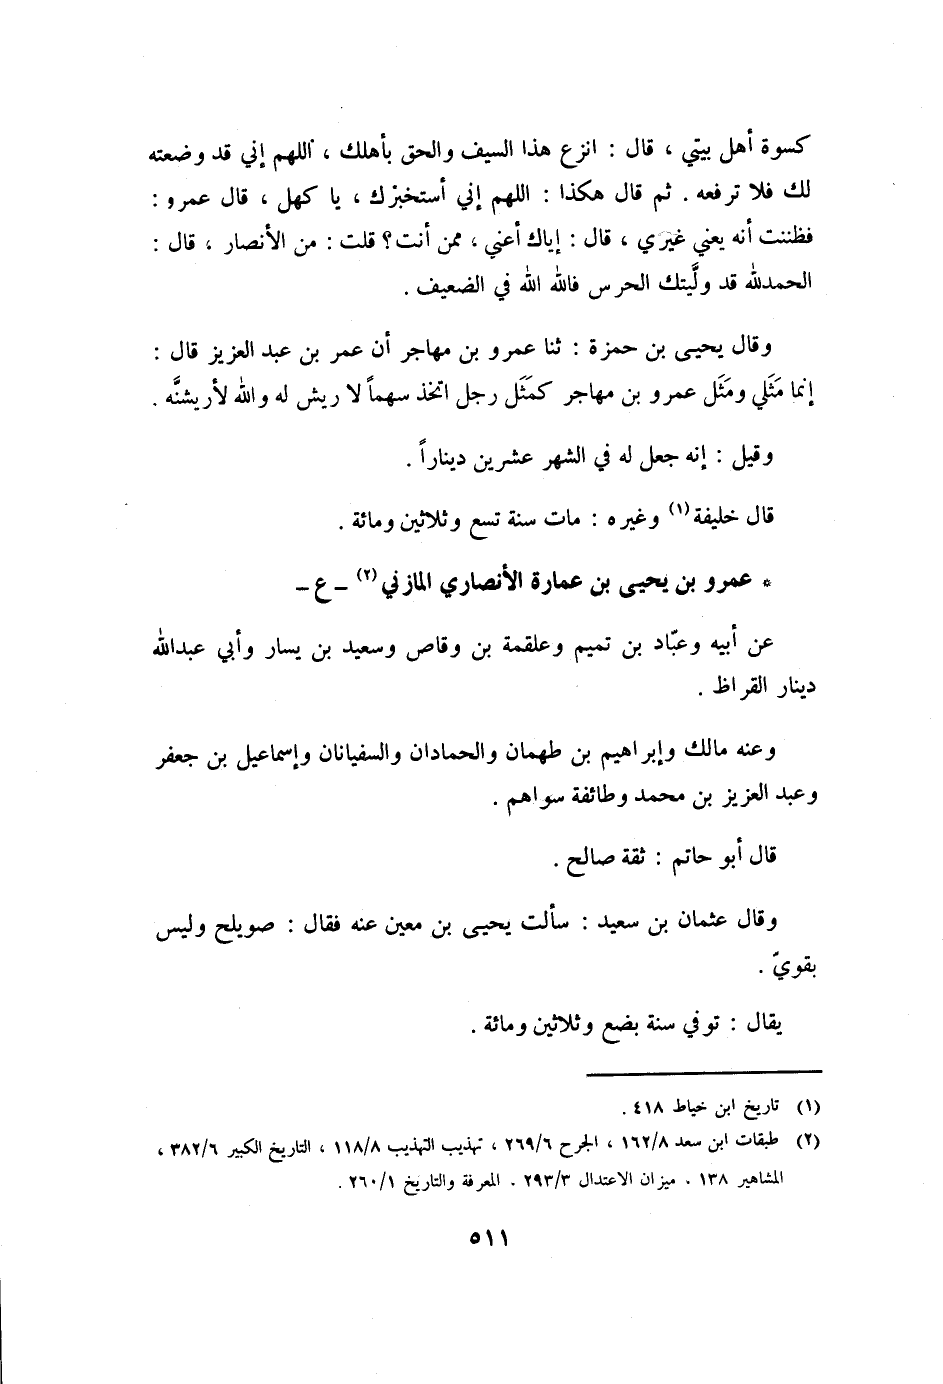 كسوة أهل بيتي ، قال : انزع هذا السيف والحق بأهلك ، أللهم إني قد وضعته
لك فلا ترفعه . ثم قال هكذا : اللهم إني أستخبرْك ، يا كهل ، قال عمرو :
فظننت أنه يعني غيري ، قال : إياك أعني ، ممن أنت؟ قلت : من الأنصار ، قال :
الحمدلله قد ولَّيتك الحرس فالله الله في الضعيف .
وقال يحيى بن حمزة : ثنا عمرو بن مهاجر أن عمر بن عبد العزيز قال :
إنما مَثَلي ومَثَل عمرو بن مهاجر كمَثَل رجل اتخذ سهماً لا ريش له والله لأريشنَّه .
وقيل : إنه جعل له في الشهر عشرين ديناراً .
قال خليفة (١) وغيره : مات سنة تسع وثلاثين ومائة .
* عمرو بن يحيى بن عمارة الأنصاري المازني (٢) ـ ع ـ
عن أبيه وعبّاد بن تميم وعلقمة بن وقاص وسعيد بن يسار وأبي عبدالله
دينار القراظ .
وعنه مالك وإبراهيم بن طهمان والحمادان والسفيانان وإسماعيل بن جعفر
وعبد العزيز بن محمد وطائفة سواهم .
قال أبو حاتم : ثقة صالح .
وقال عثمان بن سعيد : سألت يحيى بن معين عنه فقال : صويلح وليس
بقويّ .
يقال : توفي سنة بضع وثلاثين ومائة .
(١) تاريخ ابن خياط ٤١٨ .
(٢) طبقات ابن سعد ١٦٢/٨ ، الجرح ٢٦٩/٦ ، تهذيب التهذيب ١١٨/٨ ، التاريخ الكبير ٣٨٢/٦ ،
المشاهير ١٣٨ . ميزان الاعتدال ٢٩٣/٣ . المعرفة والتاريخ ٢٦٠/١ .
٥١١